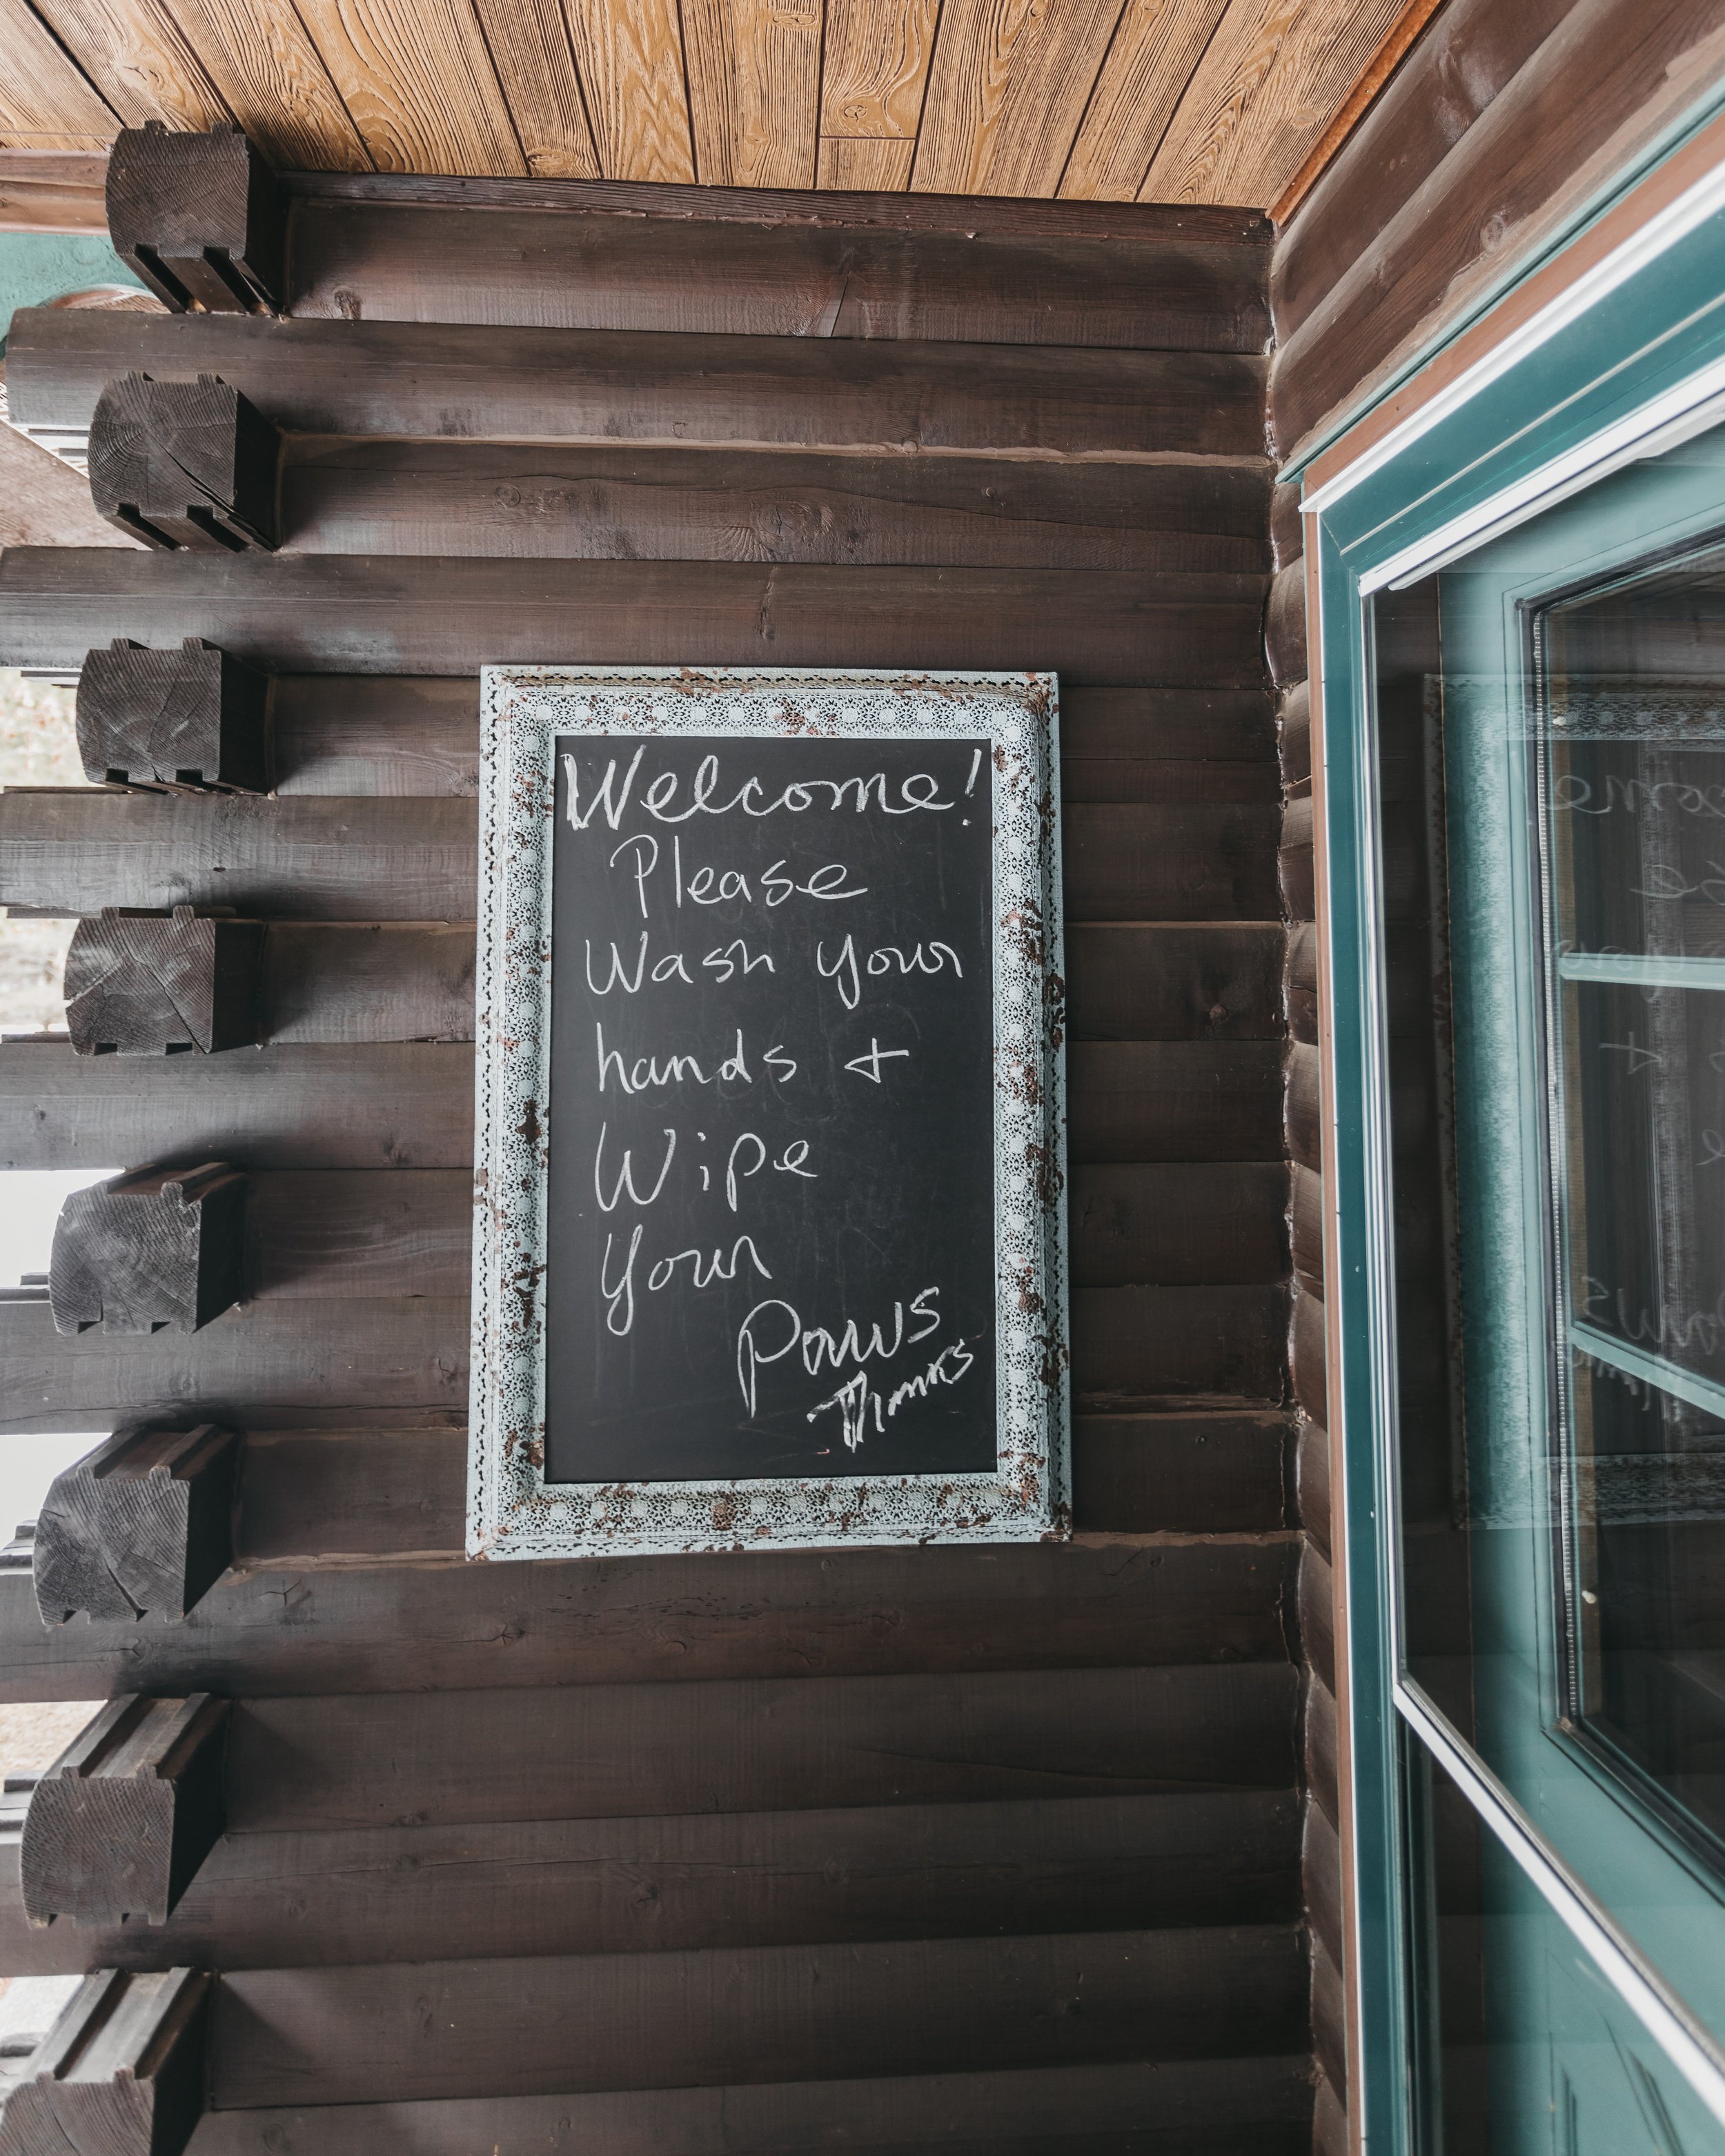 Welcome!
Please
Wash your
hands +
Wipe
your
Paws
Thanks